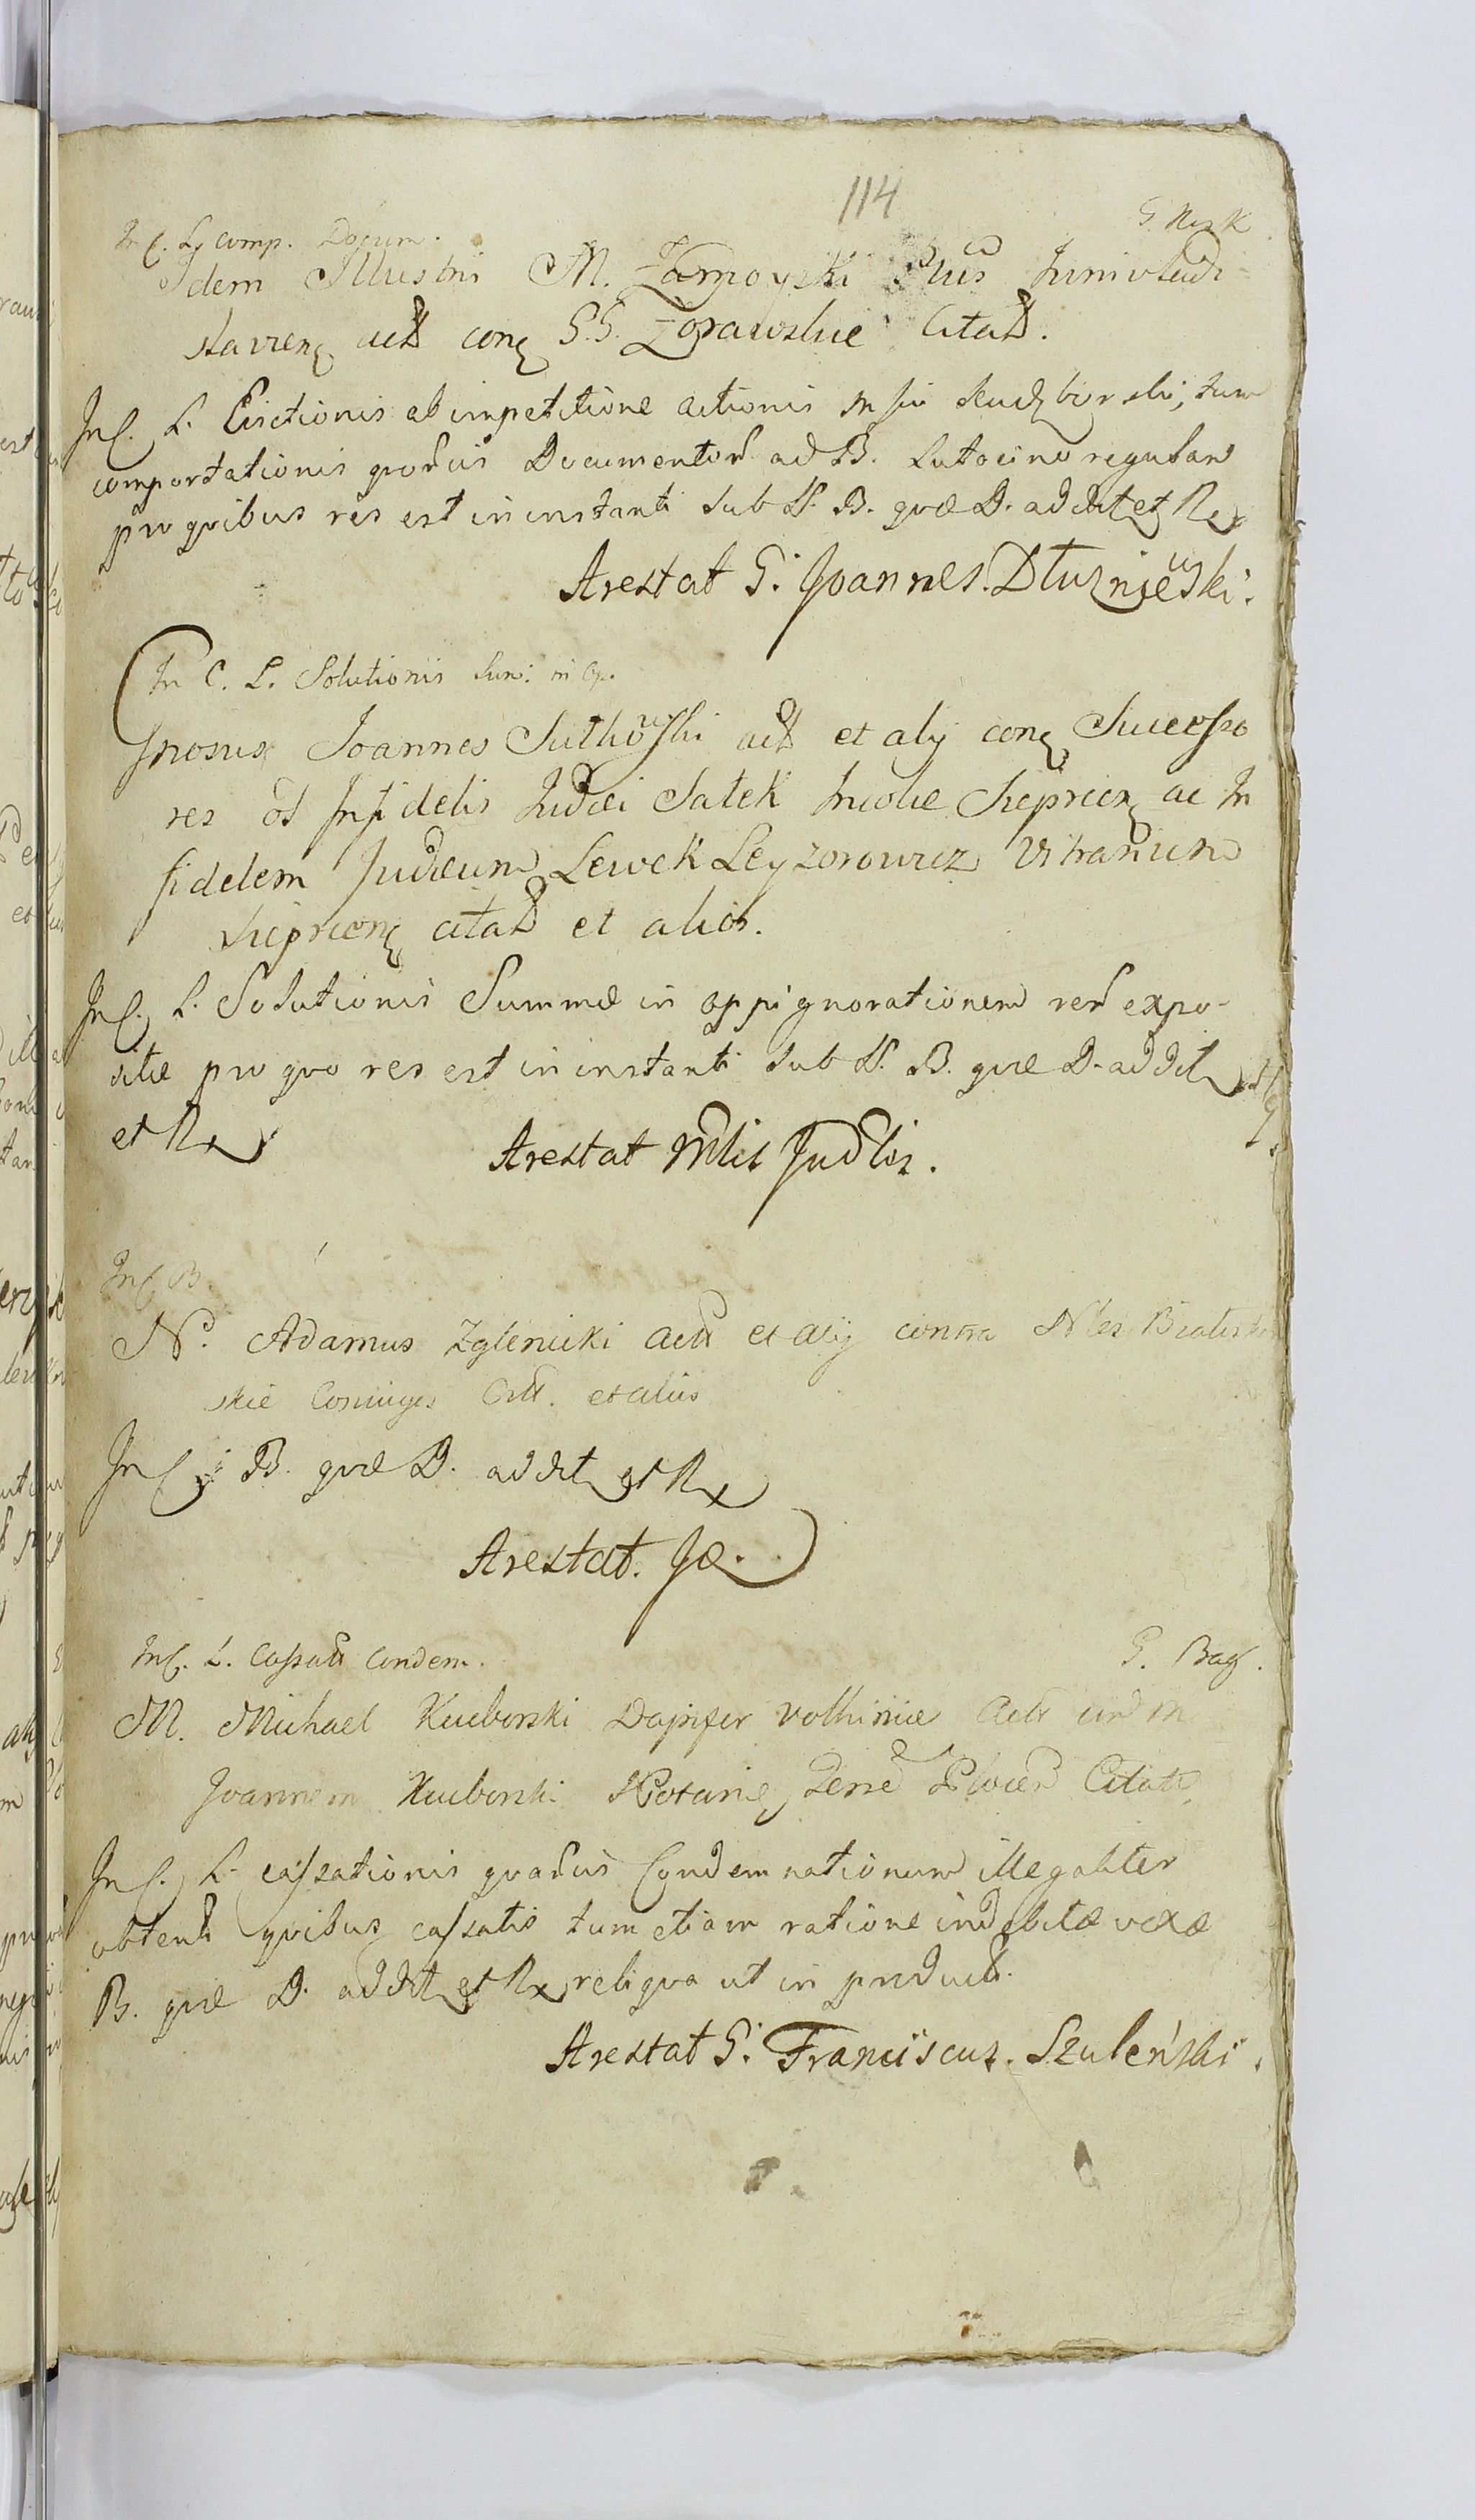 114
In C. L. comp. Docum. G. Nisk
Idem Illustris M. Zamoyski
stavien act con G.G. Zorawskie Citat.
In C. L. Evictionis ab impetitione actionis Mfci Kuczborski, tum
comportationis quorvis Documentor ad B. Lutocino regulan
pro quibus res est in instanti sub N. B. quæ D. addet et R
Arestat G. Joannes Dłuzniewski.
In C. L. Solutionis Sum: in Op.
Gnosus Joannes Sutkowski act et alij con Successo
res od Infidelis Judæi Satek Incolæ Sieprcen ac In
fidelem Judæum Lewek Leyzorowicz Vitrarium
Sieprcen citat et alios.
In C. L. Solutionis Summæ in oppignorationem rer expo-
sitæ pro quo res est in instanti sub N. B. quæ D. addet
et R
Arestat Mlis Judlis.
In C B.
N. Adamus Zglenicki Act et alij contra Nles
skie Coniuges Citt. et aliis
In C B. quæ D. addet et R
Arestat. Jæ.
In C. L. Cassat Condem. G. Bag.
M. Michael Kucborski Dapifer Volhiniæ Act cum M
Joannem Kucborski Notariu Terre Plocen Citat
In C. L. cassationis quarvis Condemnationum illegaliter
obtent quibus cassatis tum etiam ratione indebitæ vexæ
B. quæ D. addet et R reliqua ut in product.
Arestat G. Franciscus Szuleński.